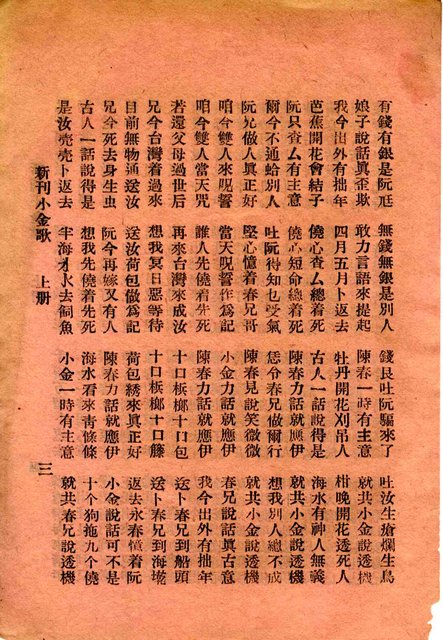 有錢有銀是阮尫 無錢無銀是別人 錢艮吐阮騙來了 吐汝生瘡爛生鳥
娘子說話真歪欺 敢力言語來提起 陳春一時有主意 就共小金說透機
我今出外有拙年 四月五月卜返去 牡丹開花刈吊人 柑晚開花透死人
芭蕉開花會結子 僥心查厶總着死 古人一話說得是 海水有神人無義
阮只查厶有主意 僥心短命總着死 陳春力話就應伊 就共小金說透機
爾今不通蛤別人 吐阮得知乜受氣 恁今春兄做爾行 想我別人總不成
阮兄做人真正好 堅心憶着春兄哥 陳春見說笑微微 就共小金說透機
咱今雙人來呪誓 當天呪誓作為記 小金力話就應伊 春兄說話真古意
咱今雙人當天咒 誰人先僥着先死 陳春力話就應伊 我今出外有拙年
若還父母過世后 再來台灣來成汝 十口梹榔十口包 送卜春兄到船頭
兄今台灣着過來 想我冥日惡等待 十口梹榔十口籐 送卜春兄到海墘
目前無物通送汝 送汝荷包做為記 荷包綉來真正好 返去永春憶着阮
兄今死去身生虫 阮今再嫁又有人 陳春力話就應伊 小金說話可不是
古人一話說得是 想我先僥着先死 海水看來青條條 十个狗拖九个僥
是汝売売卜返去 半海才水去飼魚 小金一時有主意 就共春兄說透機
新刊小金歌 上册 三